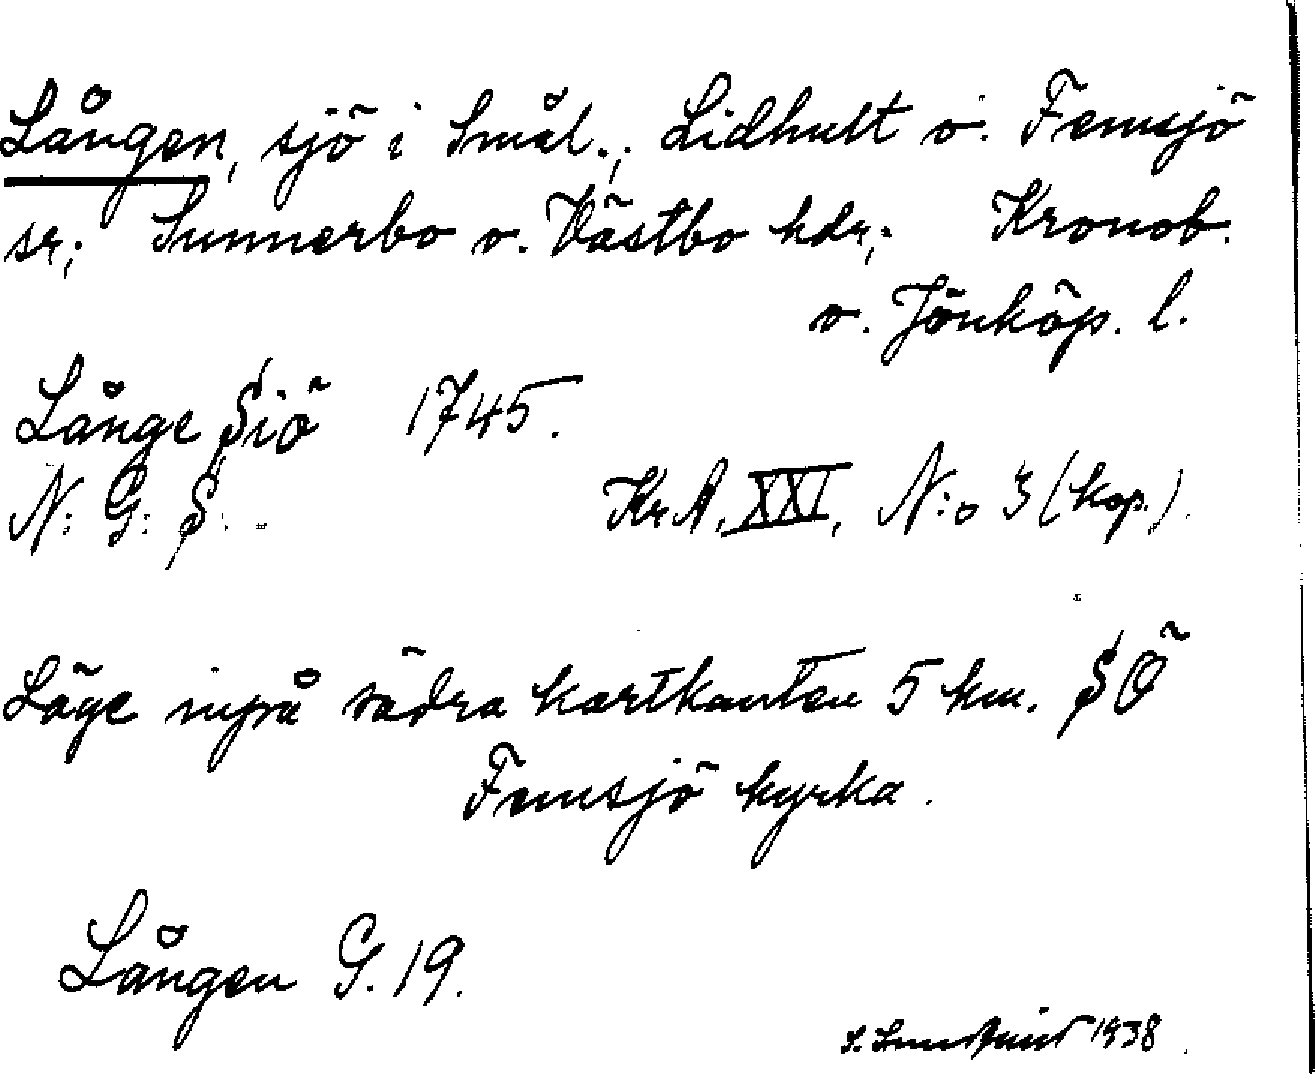 Lången, sjö i Smål.; Lidhult o. Femsjö
sr; Sunnerbo o. Västbo hdr; Kronob.
o. Jönköp. l.
Långe Siö 1745.
N: G: S. Kr.A. XXI, N:o 3 (kop.).
Läge inpå södra kartkanten 5 km. SÖ
Femsjö kyrka.
Lången G. 19.
1938.